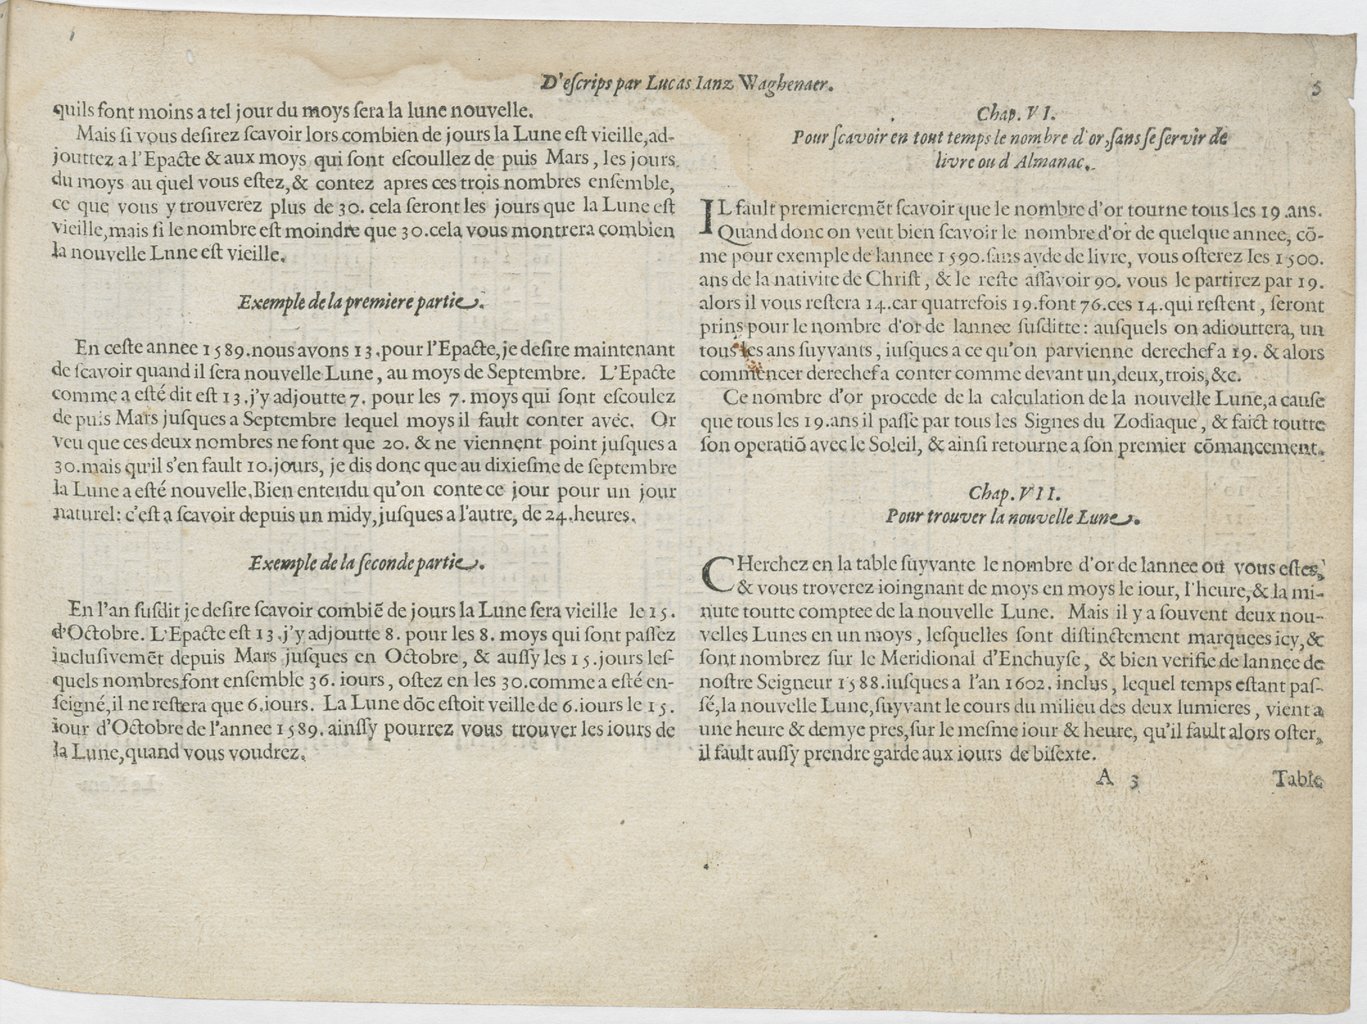 D'eſcrips par Lucas Ianz Waghenaer.
5
quils ſont moins a tel jour du moys ſera la lune nouvelle.
Mais ſi vous deſirez ſcavoir lors combien de jours la Lune eſt vieille,ad-
jouttez a l'Epacte & aux moys qui ſont eſcoullez de puis Mars, les jours
du moys au quel vous eſtez,& contez apres ces trois nombres enſemble,
ce que vous y trouverez plus de 30. cela ſeront les jours que la Lune eſt
vieille,mais ſi le nombre eſt moindre que 30.cela vous montrera combien
la nouvelle Lnne eſt vieille.
Exemple de la premiere partie.
En ceſte annee 1589.nous avons 13.pour l'Epacte,je deſire maintenant
de ſcavoir quand il ſera nouvelle Lune, au moys de Septembre. L'Epacte
comme a eſté dit eſt 13.j'y adjoutte 7. pour les 7. moys qui ſont eſcoulez
de puis Mars juſques a Septembre lequel moys il fault conter avec. Or
veu que ces deux nombres ne font que 20. & ne viennent point juſques a
30.mais qu'il s'en fault 10.jours, je dis donc que au dixieſme de ſeptembre
la Lune a eſté nouvelle.Bien entendu qu'on conte ce jour pour un jour
naturel: c'eſt a ſcavoir depuis un midy,juſques a l'autre, de 24.heures.
Exemple de la ſeconde partie.
En l'an ſuſdit je deſire ſcavoir combiẽ de jours la Lune ſera vieille le 15.
d'Octobre. L'Epacte eſt 13.j'y adjoutte 8. pour les 8. moys qui ſont paſſez
incluſivemẽt depuis Mars juſques en Octobre, & auſſy les 15.jours leſ-
quels nombres font enſemble 36. iours, oſtez en les 30.comme a eſté en-
ſeigné,il ne reſtera que 6.iours. La Lune dõc eſtoit veille de 6.iours le 15.
iour d'Octobre de l'annee 1589. ainſſy pourrez vous trouver les iours de
la Lune,quand vous voudrez.
Chap. VI.
Pour ſcavoir en tout temps le nombre d'or,ſans ſe ſervir de
livre ou d Almanac.
IL fault premieremẽt ſcavoir que le nombre d'or tourne tous les 19.ans.
Quand donc on veut bien ſcavoir le nombre d'or de quelque annee, cõ-
me pour exemple de lannee 1590.ſans ayde de livre, vous oſterez les 1500.
ans de la nativite de Chriſt, & le reſte aſſavoir 90. vous le partirez par 19.
alors il vous reſtera 14.car quatrefois 19.font 76.ces 14.qui reſtent, ſeront
prins pour le nombre d'or de lannee ſuſditte: auſquels on adiouttera, un
tous les ans ſuyvants, iuſques a ce qu'on parvienne derechef a 19. & alors
commencer derechef a conter comme devant un,deux,trois,&c.
Ce nombre d'or procede de la calculation de la nouvelle Lune,a cauſe
que tous les 19.ans il paſſe par tous les Signes du Zodiaque, & faict toutte
ſon operatiõ avec le Soleil, & ainſi retourne a ſon premier cõmancement.
Chap. VII.
Pour trouver la nouvelle Lune.
CHerchez en la table ſuyvante le nombre d'or de lannee ou vous eſtes,
& vous troverez ioingnant de moys en moys le iour, l'heure,& la mi-
nute toutte comptee de la nouvelle Lune. Mais il y a ſouvent deux nou-
velles Lunes en un moys, leſquelles ſont diſtinctement marquees icy,&
ſont nombrez ſur le Meridional d'Enchuyſe, & bien verifie de lannee de
noſtre Seigneur 1588.iuſques a l'an 1602. inclus, lequel temps eſtant paſ-
ſé,la nouvelle Lune,ſuyvant le cours du milieu des deux lumieres, vient a
une heure & demye pres,ſur le meſme iour & heure, qu'il fault alors oſter,
il fault auſſy prendre garde aux iours de biſexte.
A 3
Table